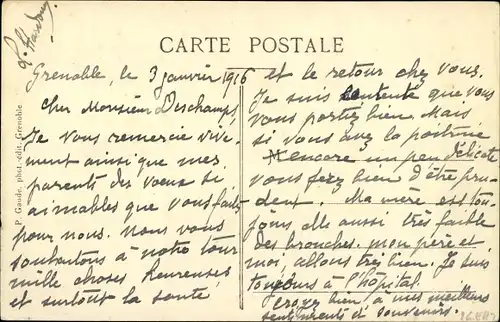 CARTE POSTALE
Grenoble, le 3 janvier 1916
cher Monsieur Deschamps,
Je vous remercie vive-
ment ainsi que mes
parents des vœux si
aimables que vous faites
pour nous. Nous vous
souhaitons à notre tour
mille choses heureuses
et surtout la santé
et le retour chez vous.
Je suis contente que vous
vous portiez bien. Mais
si vous avez la poitrine
encore un peu délicate
vous ferez bien d'être pru-
dent. Ma mère est tou-
jours, elle aussi très faible
des bronches. mon père et
moi, allons très bien. Je suis
toujours à l'hôpital.
Croyez bien, à mes meilleurs
sentiments et souvenirs.
P. Gaude, phot.-édit. Grenoble